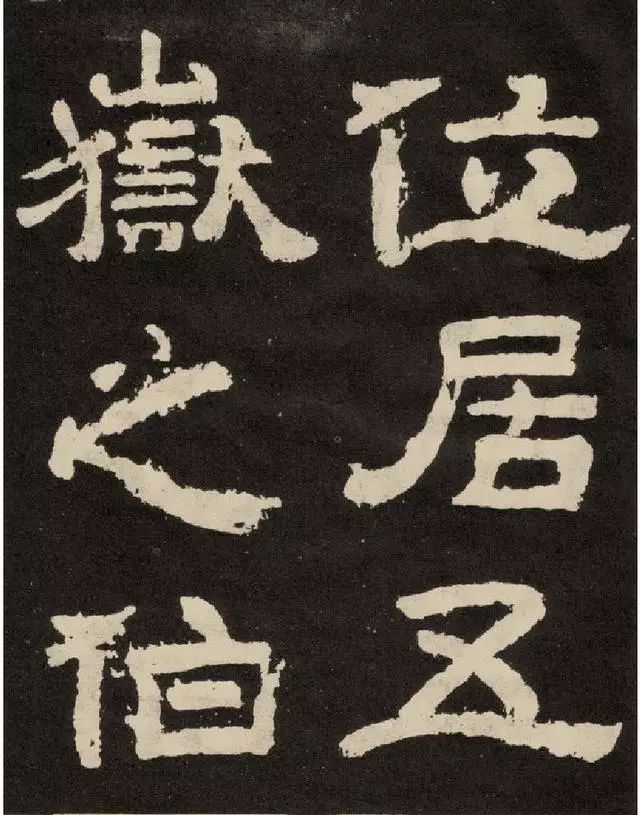 位居五
嶽之伯